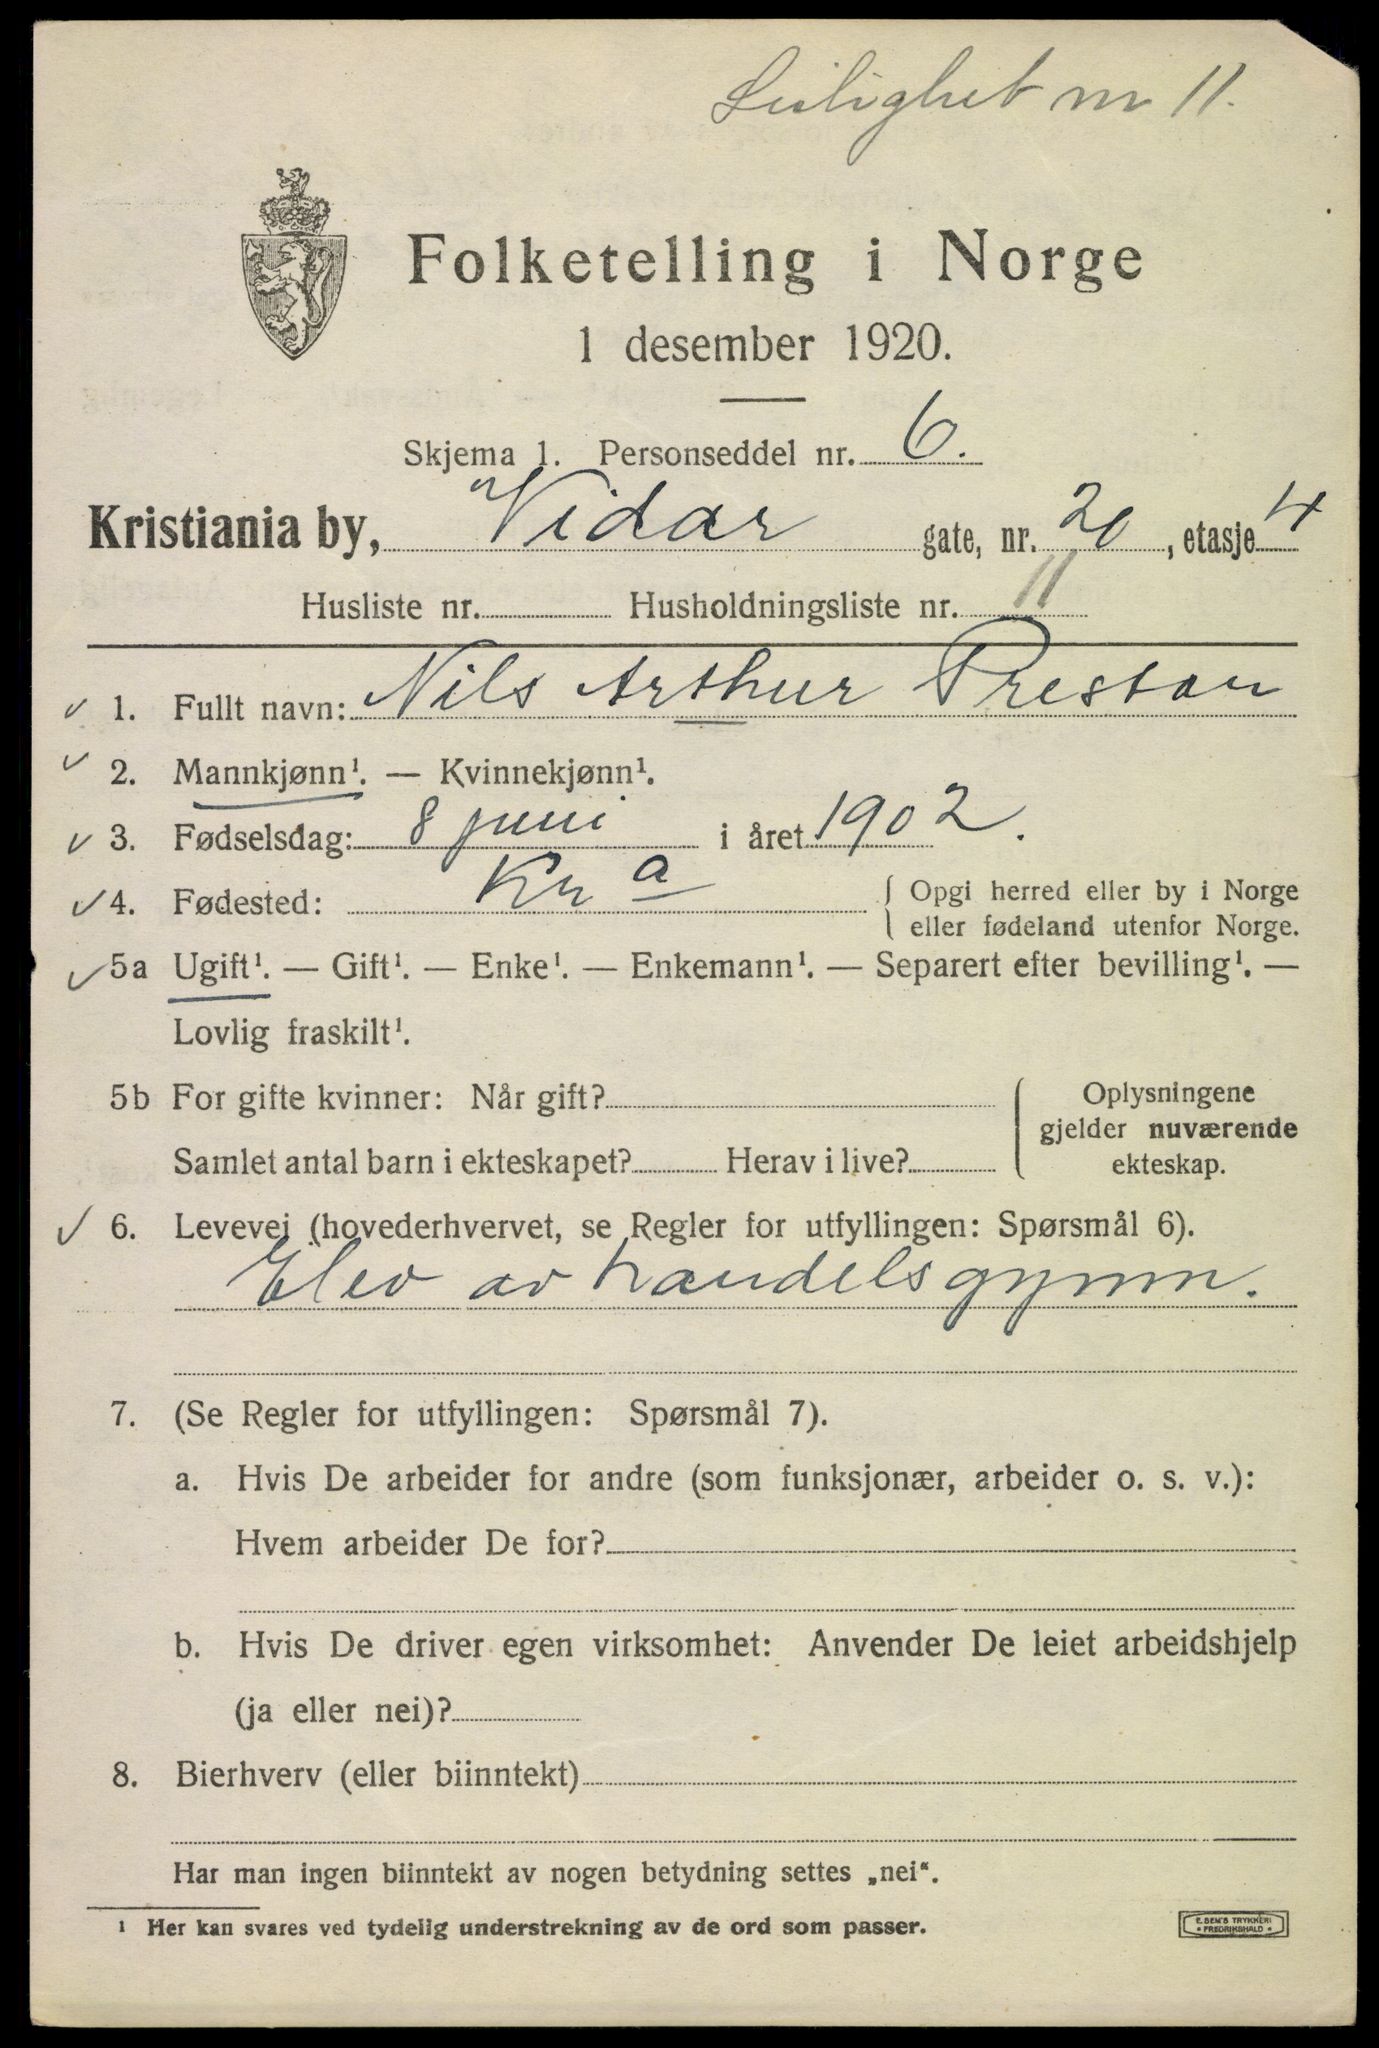 Leilighet nr 11.
Folketelling i Norge
1 desember 1920.
Skjema 1. Personseddel nr. 6.
Kristiania by, Vidar gate, nr. 20, etasje 4
Husliste nr. Husholdningsliste nr. 11
1. Fullt navn: Nils Arthur Prestan
2. Mannkjønn¹. — Kvinnekjønn¹.
3. Fødselsdag: 8 juni i året 1902.
4. Fødested: Kra { Opgi herred eller by i Norge
eller fødeland utenfor Norge.
5a Ugift¹. — Gift¹. — Enke¹. — Enkemann¹. — Separert efter bevilling¹. —
Lovlig fraskilt¹.
5b For gifte kvinner: Når gift? Oplysningene
gjelder nuværende
Samlet antal barn i ekteskapet? Herav i live? ekteskap.
6. Levevei (hovederhvervet, se Regler for utfyllingen: Spørsmål 6).
Elev av handelsgymn.
7. (Se Regler for utfyllingen: Spørsmål 7).
a. Hvis De arbeider for andre (som funksjonær, arbeider o. s. v.):
Hvem arbeider De for?
b. Hvis De driver egen virksomhet: Anvender De leiet arbeidshjelp
(ja eller nei)?
8. Bierhverv (eller biinntekt)
Har man ingen biinntekt av nogen betydning settes „nei“.
¹ Her kan svares ved tydelig understrekning av de ord som passer.
E. SEM'S TRYKKERI
FREDRIKSHALD